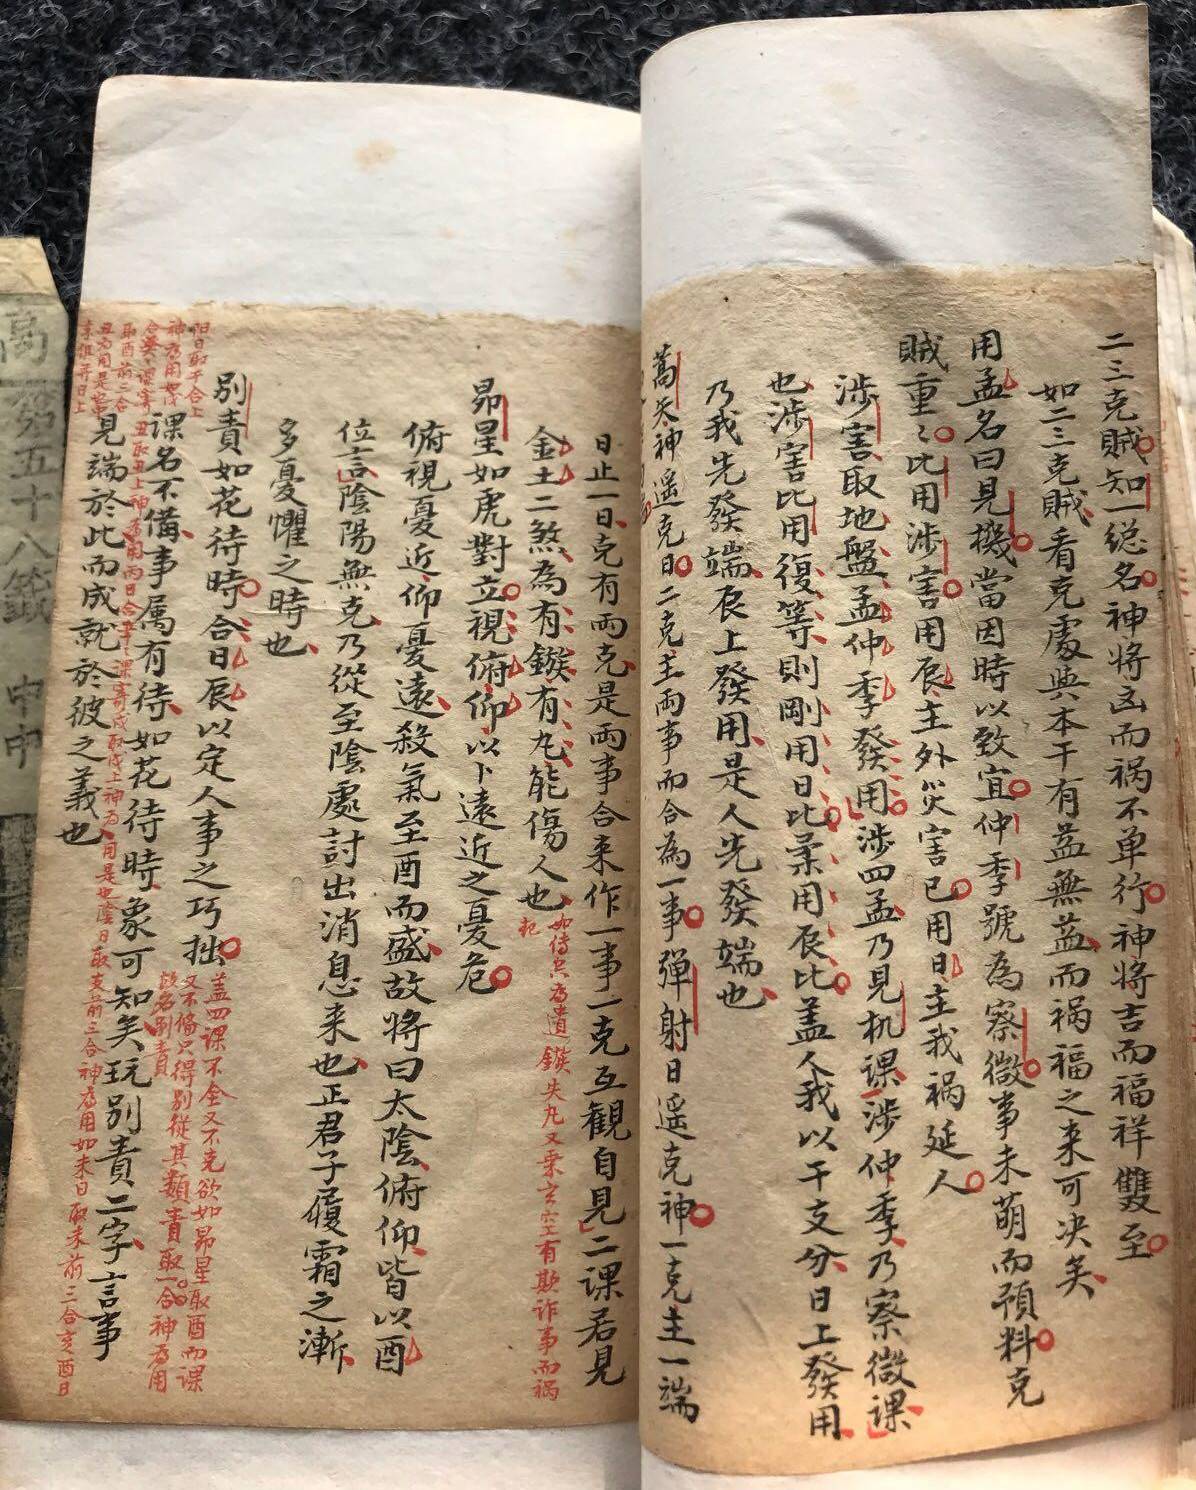 二三克賊知一総名神将凶而祸不单行神将吉而福祥雙至
如二三克賊看克處與本干有益無益而祸福之来可决矣
用孟名曰見機當因時以致宜仲季號為察微事未萌而預料克
賊重〻比用涉害用辰主外災害已用日主我祸延人
涉害取地盤孟仲季發用涉四孟乃見机課涉仲季乃察微課
也涉害比用復等則剛用日比柔用辰比盖人我以干支分日上發用
乃我先發端辰上發用是人先發端也
蒿矢神遥克日二克主兩事而合為一事弹射日遥克神一克主一端
日止一日克有兩克是兩事合来作一事一克互観自見二課若見
金土二煞為有鏃有丸能傷人也
如傳空為遺鏃失丸又乗玄空有欺诈事而祸
昴星如虎對立視俯仰以卜遠近之憂危
俯視憂近仰憂遠殺氣至酉而盛故将曰太陰俯仰皆以酉
位言陰陽無克乃從至陰處討出消息来也正君子履霜之漸
多憂懼之時也
別責如花待時合日辰以定人事之巧拙
盖四課不全又不克欲如昴星取酉而课
又不俻只得别從其類責取一合神為用
故名别責
課名不備事属有待如花待時象可知矣玩别責二字言事
見端於此而成就於彼之義也
阳日取干合上
神為用如
丑取丑上神為用丙日合辛〻課寄戌取戌上神為用是也陰日取支前三合神為用如未日取未前三合亥酉日
取酉前三合
丑為用是也
第五十八籤 中中